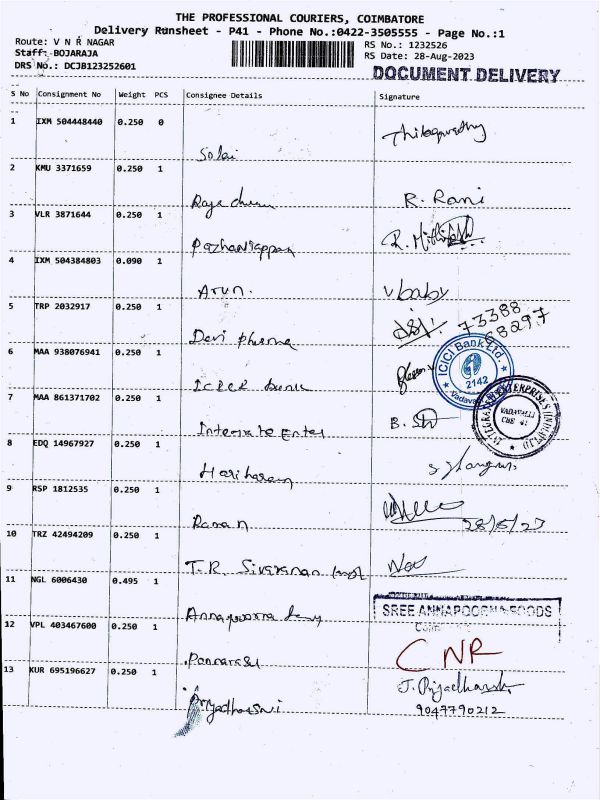 THE PROFESSIONAL COURIERS, COIMBATORE
Delivery Runsheet - P41 - Phone No.:0422-3505555 - Page No.:1
Route: V N R NAGAR
Staff: BOJARAJA
DRS No.: DCJB123252601
RS No.: 1232526
RS Date: 28-Aug-2023
DOCUMENT DELIVERY
S No Consignment No Weight PCS Consignee Details Signature
1 IXM 504448440 0.250 0
Solai
2 KMU 3371659 0.250 1
R. Rani
3 VLR 3871644 0.250 1
Pazhaniappan R.
4 IXM 504384803 0.090 1
Arun. V baby
5 TRP 2032917 0.250 1
Devi pharma 73388
68297
6 MAA 938076941 0.250 1
ICICI bank
ICICI Bank Ltd.
2142
7 MAA 861371702 0.250 1
Integrate Enter B.
VADAVALLI
CBE 41
8 EDQ 14967927 0.250 1
Hariharan
9 RSP 1812535 0.250 1
Raman
10 TRZ 42494209 0.250 1
T.R.
11 NGL 6006430 0.495 1
Annapoorna
SREE ANNAPOORNA FOODS
12 VPL 403467600 0.250 1
Pannarasi CNR
13 KUR 695196627 0.250 1
Priyadharsni J. Priyadharsni
9047790212